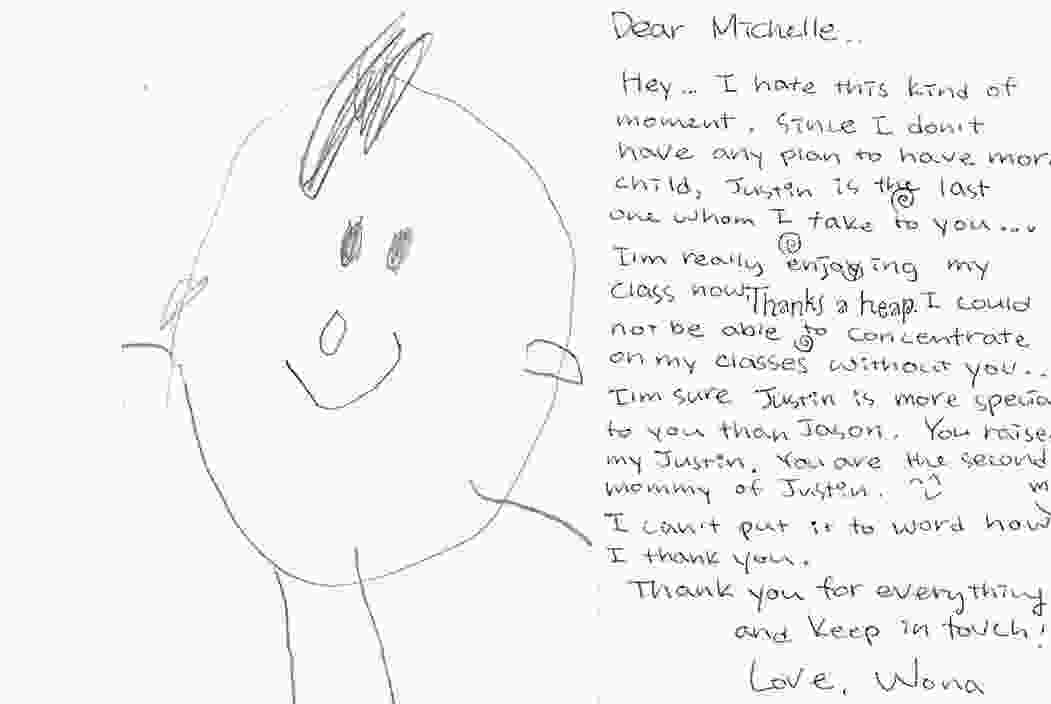 Dear Michelle..
Hey... I hate this kind of
moment. Since I don't
have any plan to have mor
child, Justin is the last
one whom I take to you....
I'm really enjoying my
class now. Thanks a heap. I could
not be able to concentrate
on my classes without you...
I'm sure Justin is more specia
to you than Jason. You raise
my Justin. You are the second
mommy of Justin. m
I can't put it to word how
I thank you.
Thank you for everything
and keep in touch!
Love, Wona